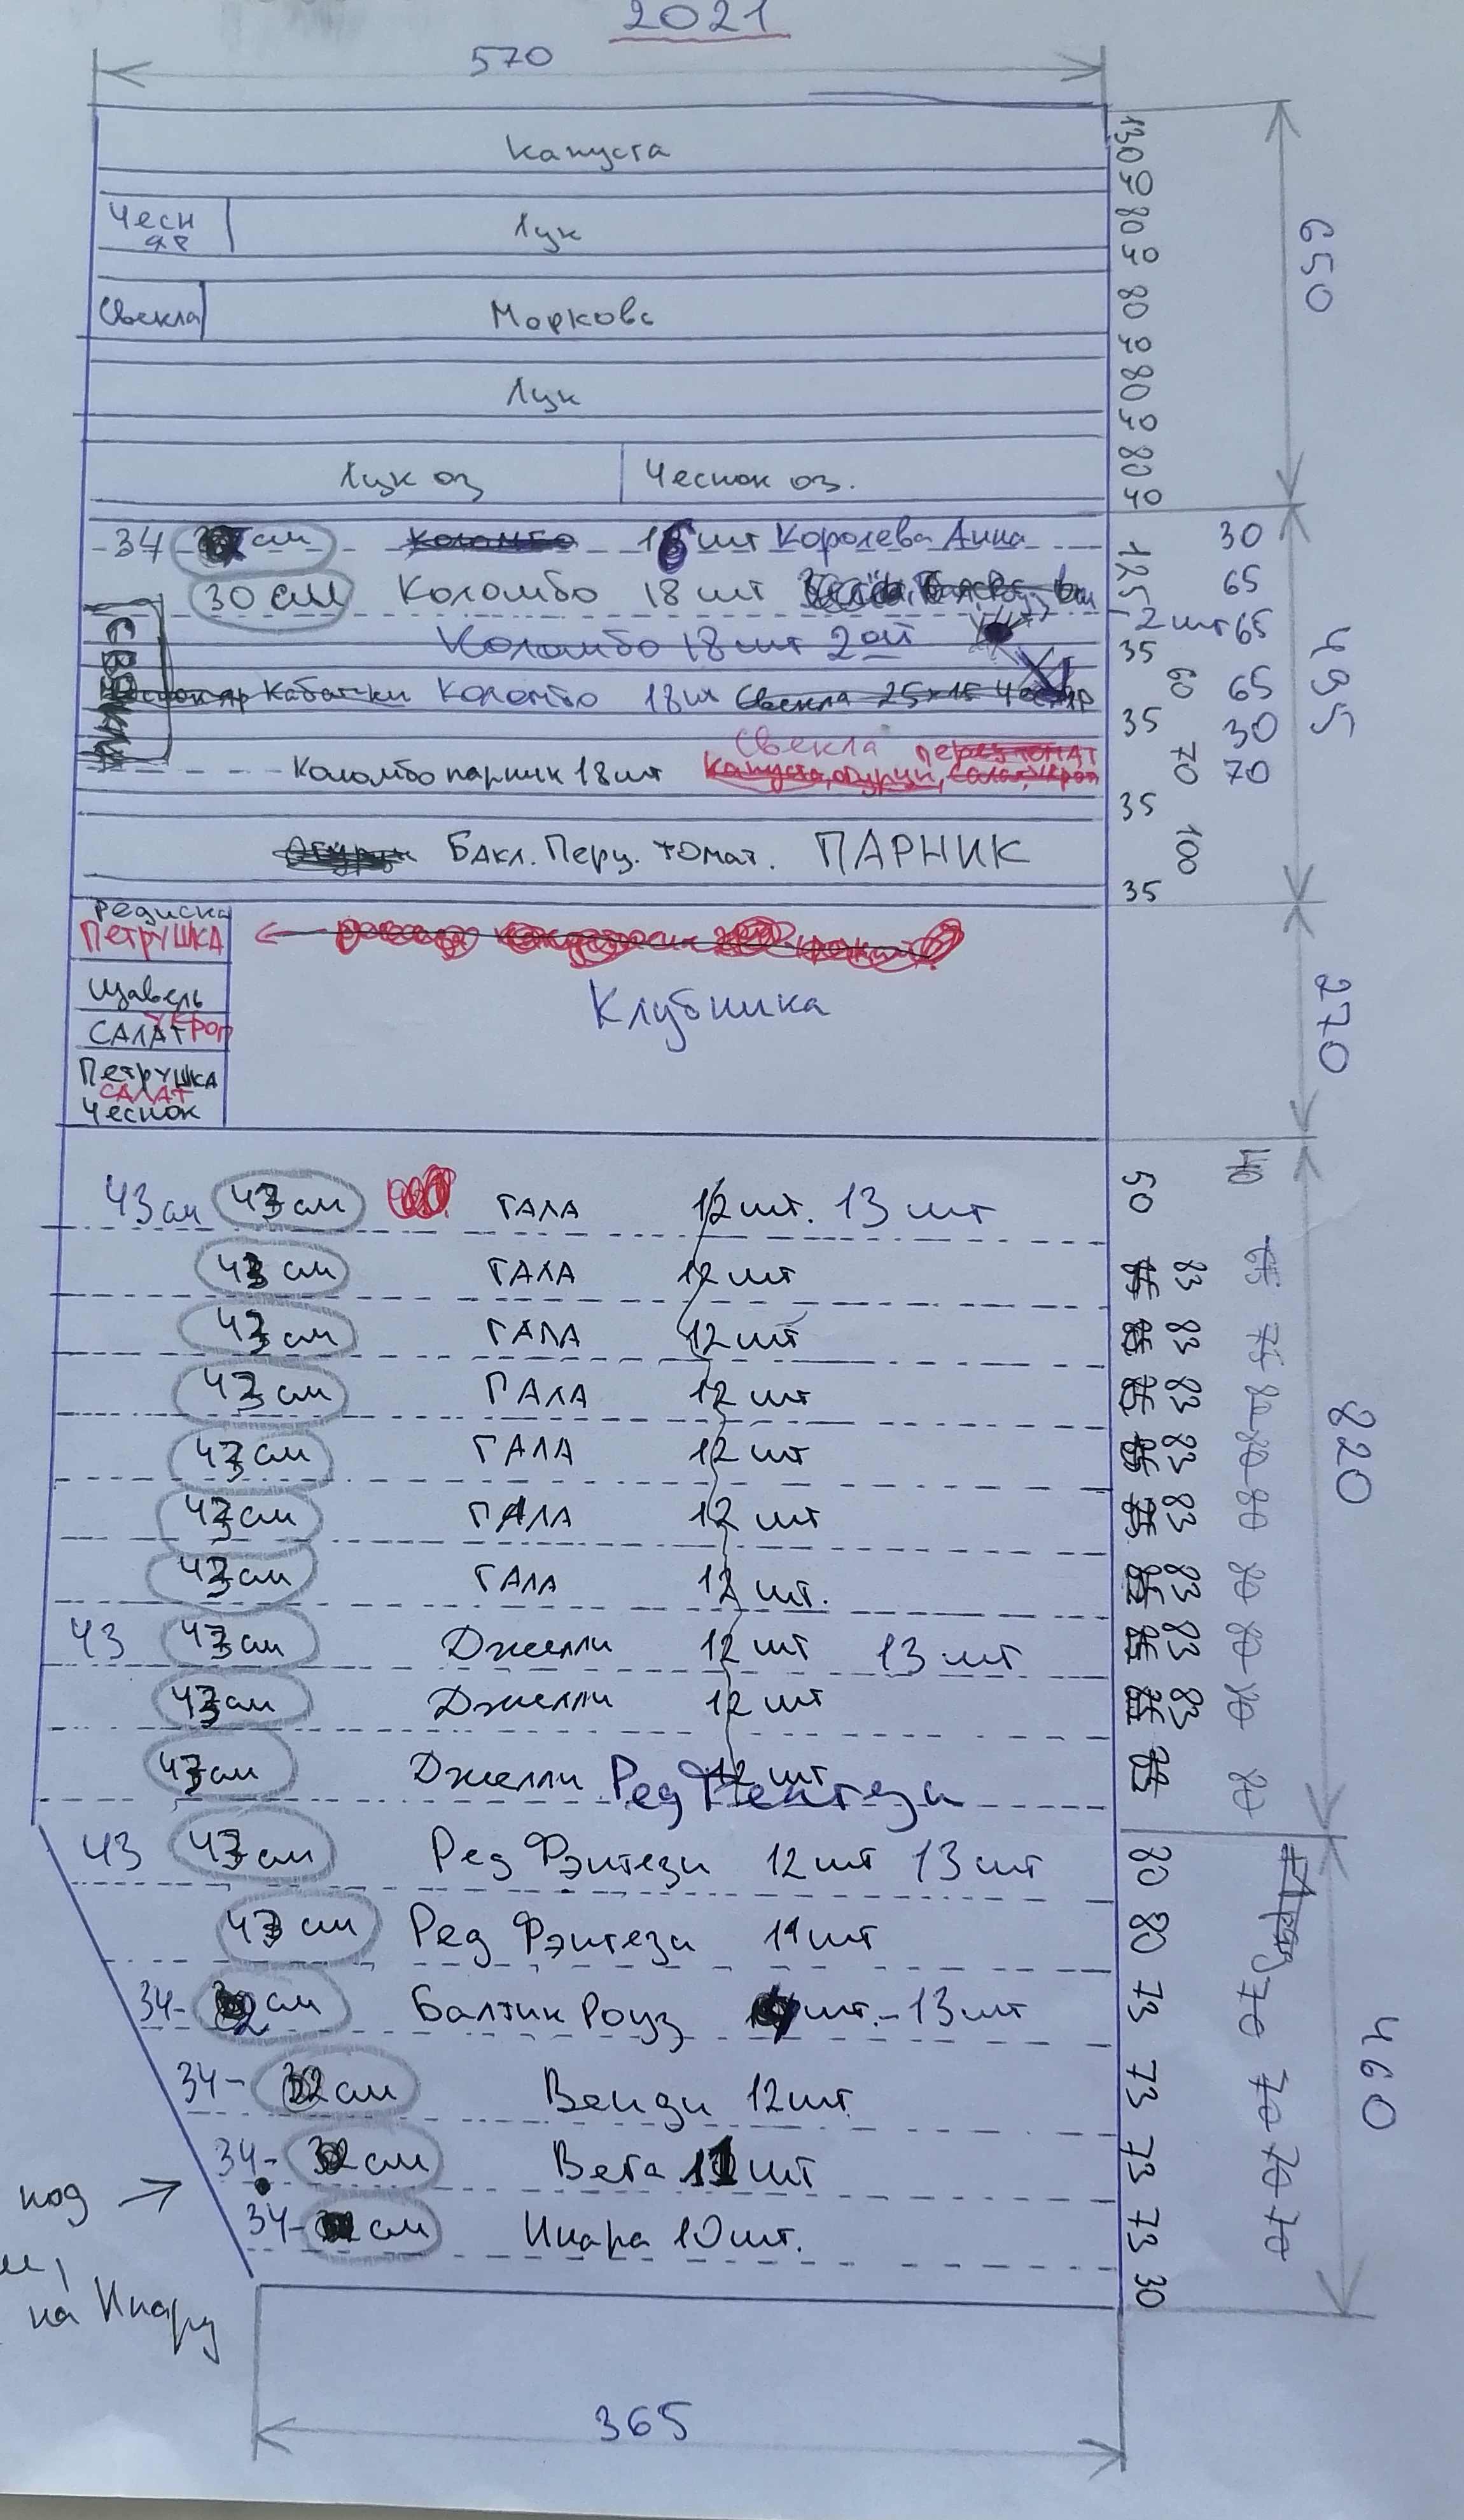 2021
570
Капуста 130
40
Чесн яр Лук 80
40
650
Свекла Морковь 80
40
Лук 80
40
Лук оз Чеснок оз. 80
40
34 см Коломбо 18 шт Королева Анна 30
30 см Коломбо 18 шт 125 65
2 шт 65
Коломбо 18 шт 2ой 35
495
Чеснок яр Кабачки Коломбо 18 шт Свекла 25x15 Чеснок яр 60 65
35 30
Свекла
Коломбо парник 18 шт Капуста, огурцы, 70 70
35
Бакл. Перц. томат. ПАРНИК 100
35
редиска
ПЕТРУШКА
Щавель Клубника 270
УКРОП
САЛАТ
ПЕТРУШКА
САЛАТ
Чеснок
43 см 43 см ГАЛА 12 шт. 13 шт 50 40
43 см ГАЛА 12 шт 83 65
43 см ГАЛА 12 шт 83 75
43 см ГАЛА 12 шт 83 80
43 см ГАЛА 12 шт 83 80 820
43 см ГАЛА 12 шт 83 80
43 см ГАЛА 12 шт. 83 80
43 43 см Джелли 12 шт 13 шт 83 80
43 см Джелли 12 шт 83 80
43 см Джелли 12 шт Ред Фентези 80
43 43 см Ред Фэнтези 12 шт 13 шт 80
43 см Ред Фэнтези 11 шт 80
34- 32 см Балтик Роуз шт. - 13 шт 73 70
460
34- 32 см Венди 12 шт. 73 70
34- 32 см Вега 11 шт 73 70
под
34- см Инара 10 шт. 73 70
30
на Инару
365